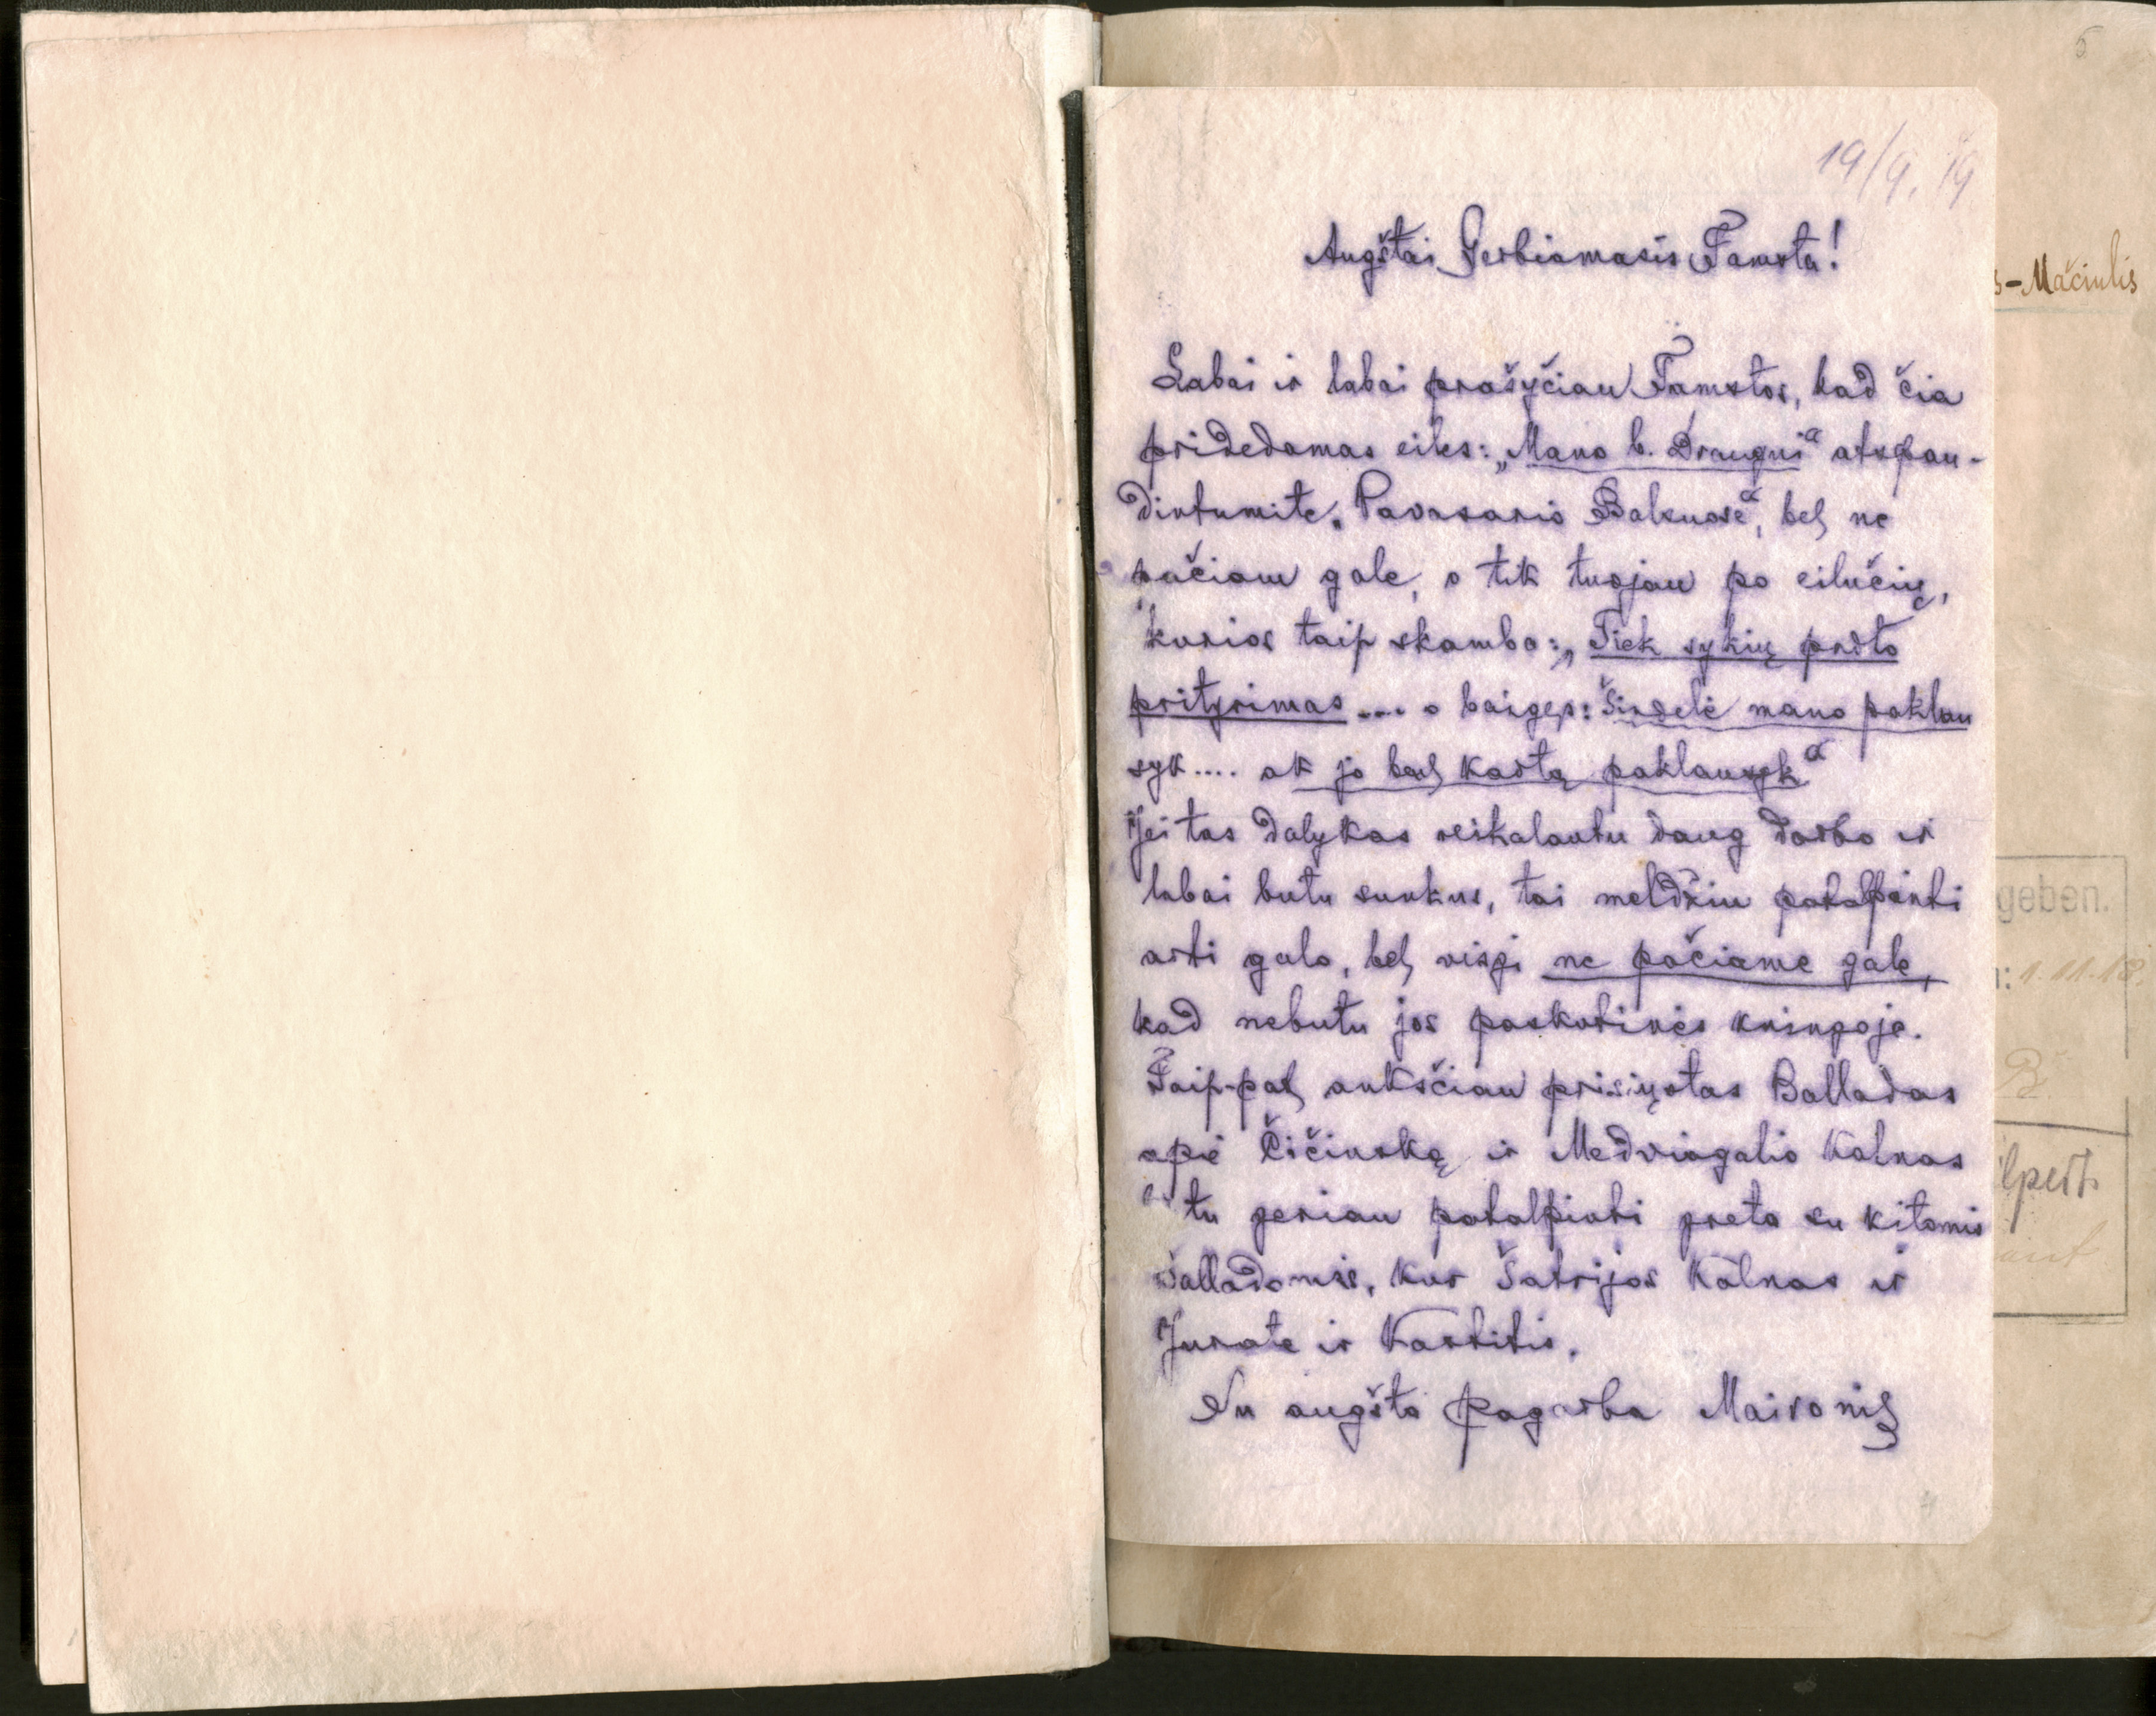 5
19/9. 19
Augštai Gerbiamasis Tamsta!
s-Mačiulis
Labai ir labai prašyčiau Tamstos, kad čia
pridedamas eiles: „Mano b. Draugui“ atspau-
dintumite „Pavasario Balsuose“, bet ne
pačiam gale, o tik tuojau po eilučių,
kurios taip skamba: „Tiek sykių prasto
prityrimas .... o baigęs: Širdelė mano paklau
syk.... ak jo bent kartą paklausyk“
Jei tas dalykas reikalautu daug darbo ir
labai butu sunkus, tai meldžiu patalpinti
arti galo, bet visgi ne pačiame gale,
kad nebutu jos paskutinės kningoje.
Taip-pat ankščiau prisiųstas Balladas
apie Čičinską ir Medviagalio Kalnas
tu geriau patalpinti greta su kitomis
Balladomis, kur Šatrijos Kalnas ir
Jurate ir Kastitis.
Su augšta pagarba Maironis
geben.
: 1.11.18.
B.